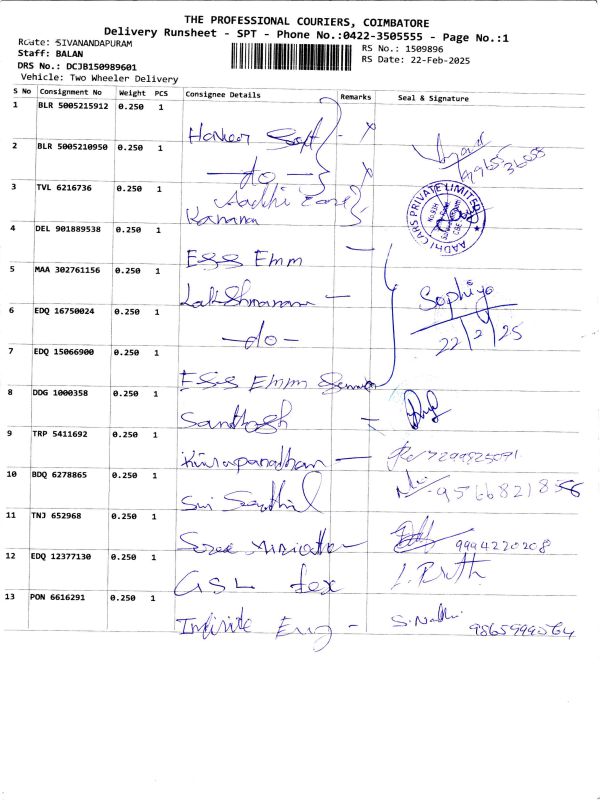 THE PROFESSIONAL COURIERS, COIMBATORE
Delivery Runsheet - SPT - Phone No.:0422-3505555 - Page No.:1
Route: SIVANANDAPURAM
RS No.: 1509896
Staff: BALAN
RS Date: 22-Feb-2025
DRS No.: DCJB150989601
Vehicle: Two Wheeler Delivery
S No Consignment No Weight PCS Consignee Details Remarks Seal & Signature
1 BLR 5005215912 0.250 1
2 BLR 5005210950 0.250 1 -do-
3 TVL 6216736 0.250 1 Aadhi Care
Kannan
AADHI CARS PRIVATE LIMITED
4 DEL 901889538 0.250 1 ESS Emm
5 MAA 302761156 0.250 1 Lakshmanan - Sophiya
6 EDQ 16750024 0.250 1 -do- 22/2/25
7 EDQ 15066900 0.250 1 ESS Emm
8 DDG 1000358 0.250 1 Santhosh -
9 TRP 5411692 0.250 1 - 7299825091
10 BDQ 6278865 0.250 1 Sri Senthil
11 TNJ 652968 0.250 1 9994220208
12 EDQ 12377130 0.250 1 GSL tex
13 PON 6616291 0.250 1 Infinite Eng -